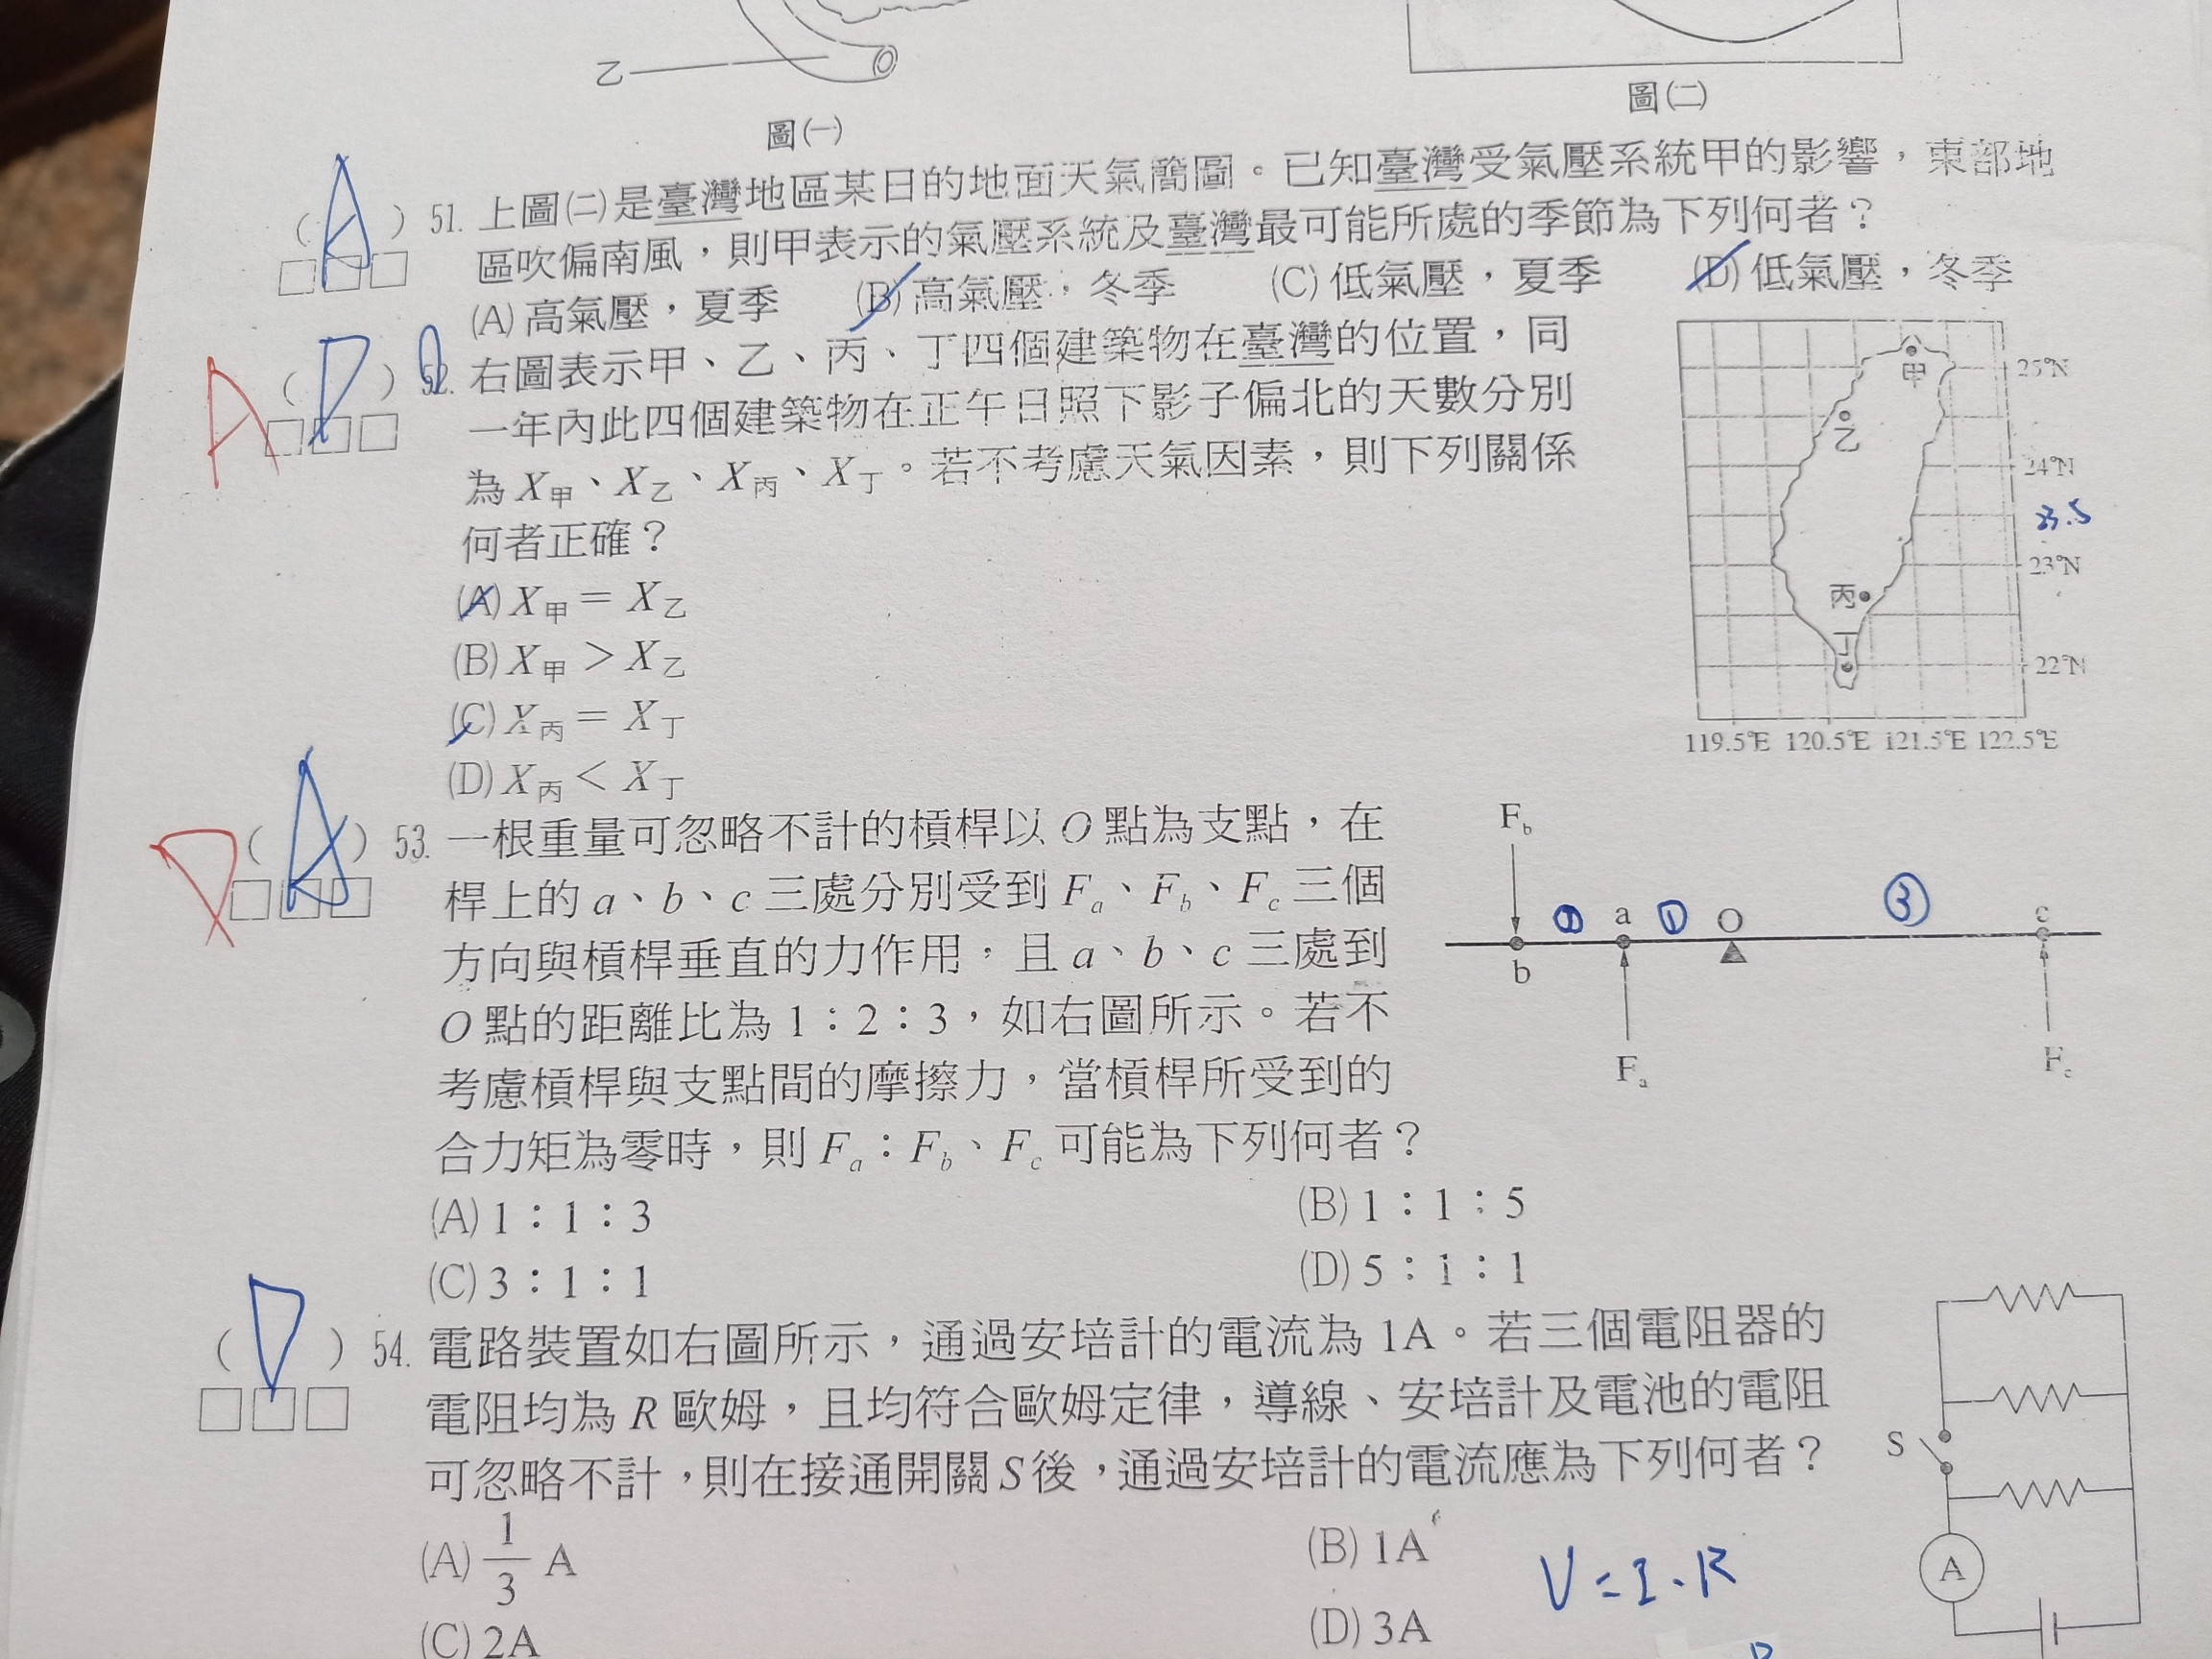 乙
圖(一)
圖(二)
(A) 51. 上圖(二)是臺灣地區某日的地面天氣簡圖。已知臺灣受氣壓系統甲的影響，東部地
區吹偏南風，則甲表示的氣壓系統及臺灣最可能所處的季節為下列何者？
(A)高氣壓，夏季 (B)高氣壓，冬季 (C)低氣壓，夏季 (D)低氣壓，冬季
A (D) 52. 右圖表示甲、乙、丙、丁四個建築物在臺灣的位置，同
一年內此四個建築物在正午日照下影子偏北的天數分別
為X甲、X乙、X丙、X丁。若不考慮天氣因素，則下列關係
何者正確？
(A) X甲 = X乙
(B) X甲 > X乙
(C) X丙 = X丁
(D) X丙 < X丁
甲
乙
丙
丁
25°N
24°N
23.5
23°N
22°N
119.5°E 120.5°E 121.5°E 122.5°E
D (A) 53. 一根重量可忽略不計的槓桿以 O 點為支點，在
桿上的 a、b、c 三處分別受到 Fa、Fb、Fc 三個
方向與槓桿垂直的力作用，且 a、b、c 三處到
O 點的距離比為 1：2：3，如右圖所示。若不
考慮槓桿與支點間的摩擦力，當槓桿所受到的
合力矩為零時，則 Fa：Fb、Fc 可能為下列何者？
(A) 1：1：3 (B) 1：1：5
(C) 3：1：1 (D) 5：1：1
Fb
a ① O ③ c
b
Fa
Fc
(D) 54. 電路裝置如右圖所示，通過安培計的電流為 1A。若三個電阻器的
電阻均為 R 歐姆，且均符合歐姆定律，導線、安培計及電池的電阻
可忽略不計，則在接通開關S後，通過安培計的電流應為下列何者？
(A) 1/3 A (B) 1A
(C) 2A (D) 3A
S
A
V = I · R